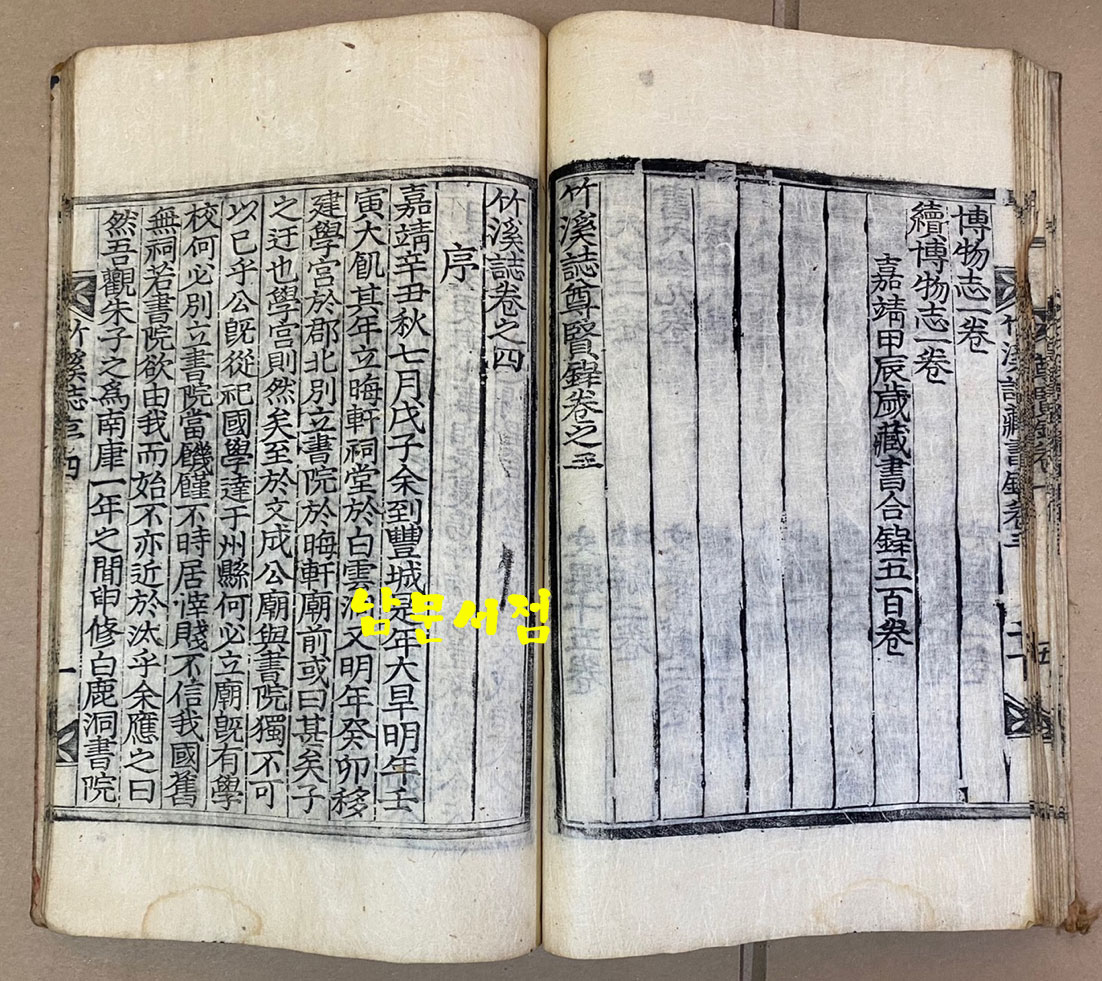 竹溪誌藏書錄卷三
博物志一卷
續博物志一卷
嘉靖甲辰歲藏書合錄五百卷
竹溪誌尊賢錄卷之三
竹溪誌卷之四
序
嘉靖辛丑秋七月戊子余到豐城是年大旱明年壬
寅大飢其年立晦軒祠堂於白雲洞又明年癸卯移
建學宮於郡北別立書院於晦軒廟前或曰甚矣子
之迂也學宮則然矣至於文成公廟與書院獨不可
以已乎公旣從祀國學達于州縣何必立廟旣有學
校何必別立書院當饑饉不時居滓賤不信我國舊
無祠若書院欲由我而始不亦近於汰乎余應之曰
然吾觀朱子之爲南康一年之間申修白鹿洞書院
竹溪志 四 一
남문서점